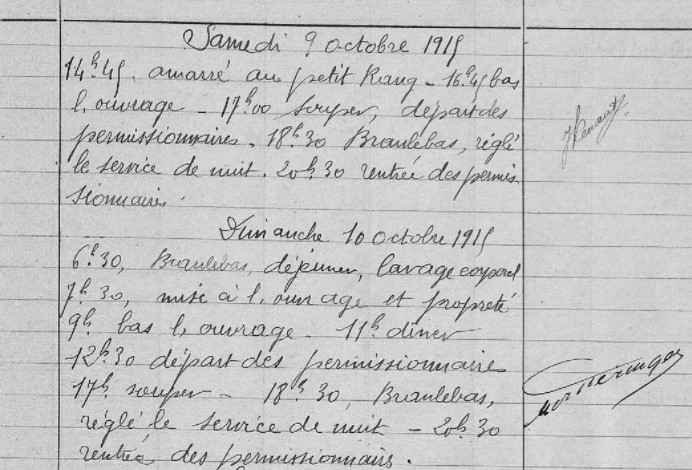 Samedi 9 octobre 1915
14h45. amarré au petit Rang - 16h45 bas
l'ouvrage - 17h00 souper, départ des
permissionnaires. 18h30 Branlebas, réglé
le service de nuit. 20h30 rentrée des permis
sionnaires.
Dimanche 10 octobre 1915
6h30, Branlebas, déjeuner, lavage corporel
7h30, mise à l'ouvrage et propreté
9h bas l'ouvrage - 11h diner
12h30 départ des permissionnaire
17h souper - 18h30, Branlebas,
réglé le service de nuit - 20h30
rentrée des permissionnaire.